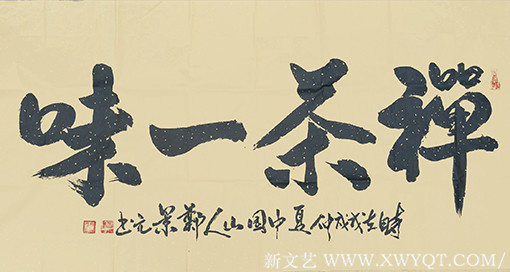 禪茶一味
時在戊戌仲夏中国山人鄭景元书
新文艺 WWW.XWYQT.COM/